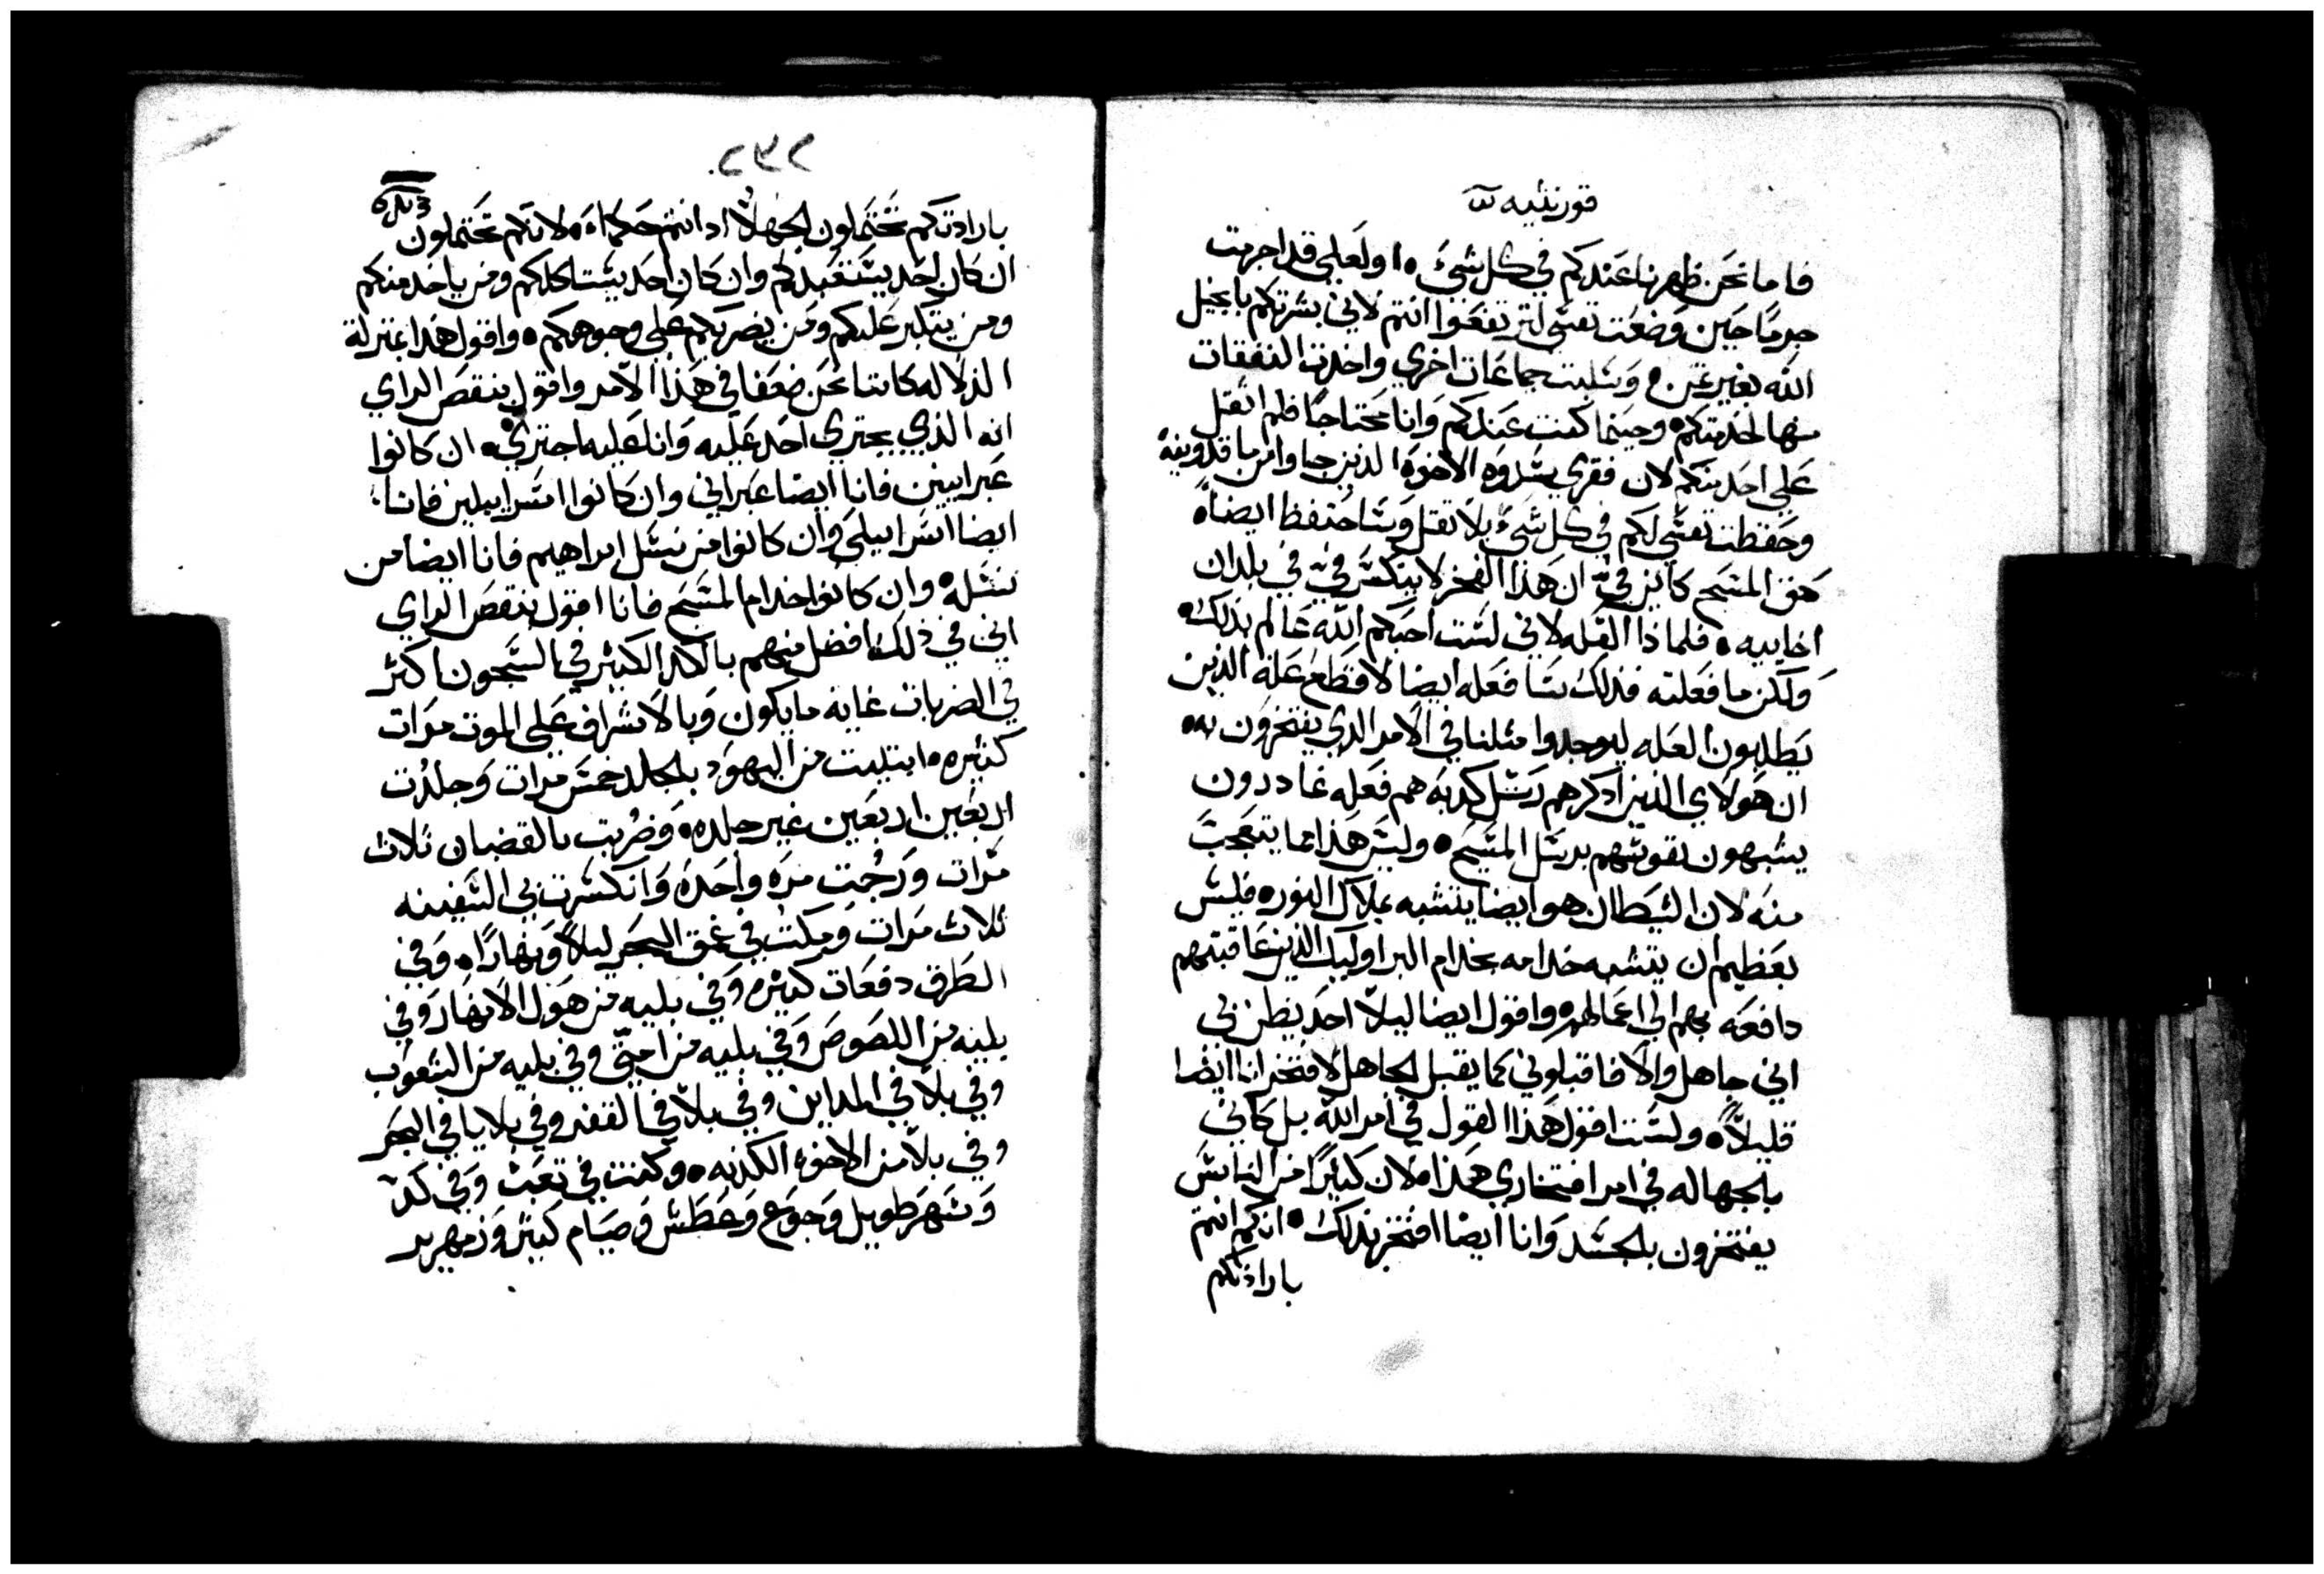 قورنثيه
فاما نحن ظهرنا عندكم في كل شيء او لعلي قد اجرمت
جرمًا حين وضعت نفسي لترتفعوا انتم لاني بشرتكم بانجيل
الله بغير ثمن وسلبت جماعات اخري واخدت النفقات
منها لخدمتكم وحينما كنت عندكم وانا محتاجًا فلم اثقل
علي احد منكم لان فقري سدوه الاخوه الذين جاوا من ماقدونيه
وحفظت نفسي لكم في كل شيء بلا ثقل وساحتفظ ايضاً
حق المسيح كاين في ان هذا الفخر لا ينكسر في في بلدان
اخاييه فلماذا القله لاني لست احبكم الله عالم بذلك
ولكن ما فعلته فذلك سافعله ايضا لاقطع علة الذين
يطلبون العله ليوجدوا مثلنا في الامر الدي يفتخرون به
ان هولاي الذين ادكرهم رسل كدبه هم فعله غادرون
يشبهون نفوسهم برسل المسيح وليس هذا مما يتعجب
منه لان الشيطان هو ايضا يتشبه بملاك النور فليس
بعظيم ان يتشبه خدامه بخدام البر اوليك الذين عاقبتهم
دافعه بهم الي اعمالهم واقول ايضا ليلا احد يظن بي
اني جاهل والا فاقبلوني كما يقبل الجاهل لافتخر انا ايضا
قليلاً ولست اقول هذا القول في امر الله بل كاني
بالجهاله في امر افتخاري هذا لان كثيرًا من الناس
يفتخرون بالجسد وانا ايضا افتخر بذلك انكم انتم
بارادتكم
٢٧٢
بارادتكم تحتملون الجهلا اد انتم حكما لانكم تحتملون
ان كان احد يستعبدكم وان كان احد يستاكلكم ومن ياخد منكم
ومن يتكبر عليكم ومن يضربكم علي وجوهكم واقول هذا بمنزلة
الذلاله كاننا نحن ضعفا في هذا الامر واقول بنقص الراي
انه الذي يجتري احد عليه وانا عليه اجتري ان كانوا
عبرانيين فانا ايضا عبراني وان كانوا اسراييلين فانا
ايضا اسراييلي وان كانوا من نسل ابراهيم فانا ايضا من
نسله وان كانوا خدام المسيح فانا اقول بنقص الراي
اني في ذلك افضل منهم بالكد الكثير في السجون اكثر
في الضربات غايه ما يكون وبالاشراف علي الموت مرات
كثيره ابتليت من اليهود بالجلد خمس مرات وجلدت
اربعين اربعين غير جلده وضربت بالقضبان ثلاث
مرات ورجمت مره واحده وانكسرت بي السفينه
ثلاث مرات ومكثت في عمق البحر ليلاً ونهارًا وفي
الطرق دفعات كثيره وفي بليه من هول الانهار وفي
بليه من اللصوص وفي بليه من امتي وفي بليه من الشعوب
وفي بلا في المداين وفي بلا في القفر وفي بلايا في البحر
وفي بلا من الاخوه الكدبه وكنت في تعب وفي كد
وسهر طويل وجوع وعطش وصيام كثير وزمهرير